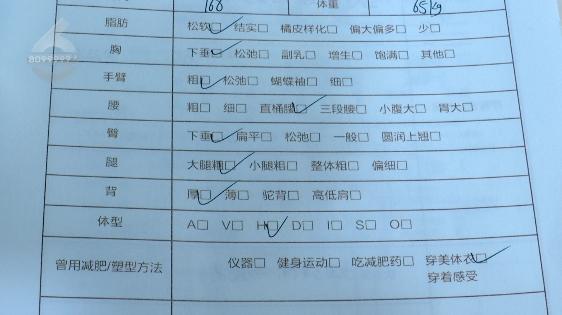 168 体重 65kg
脂肪 松软□ 结实□ 橘皮样化□ 偏大偏多□ 少□
胸 下垂□ 松弛□ 副乳□ 增生□ 饱满□ 其他□
手臂 粗□ 松弛□ 蝴蝶袖□ 细□
腰 粗□ 细□ 直桶腰□ 三段腰□ 小腹大□ 胃大□
臀 下垂□ 扁平□ 松弛□ 一般□ 圆润上翘□
腿 大腿粗□ 小腿粗□ 整体粗□ 偏细□
背 厚□ 薄□ 驼背□ 高低肩□
体型 A□ V□ H□ D□ I□ S□ O□
曾用减肥/塑型方法 仪器□ 健身运动□ 吃减肥药□ 穿美体衣□
穿着感受